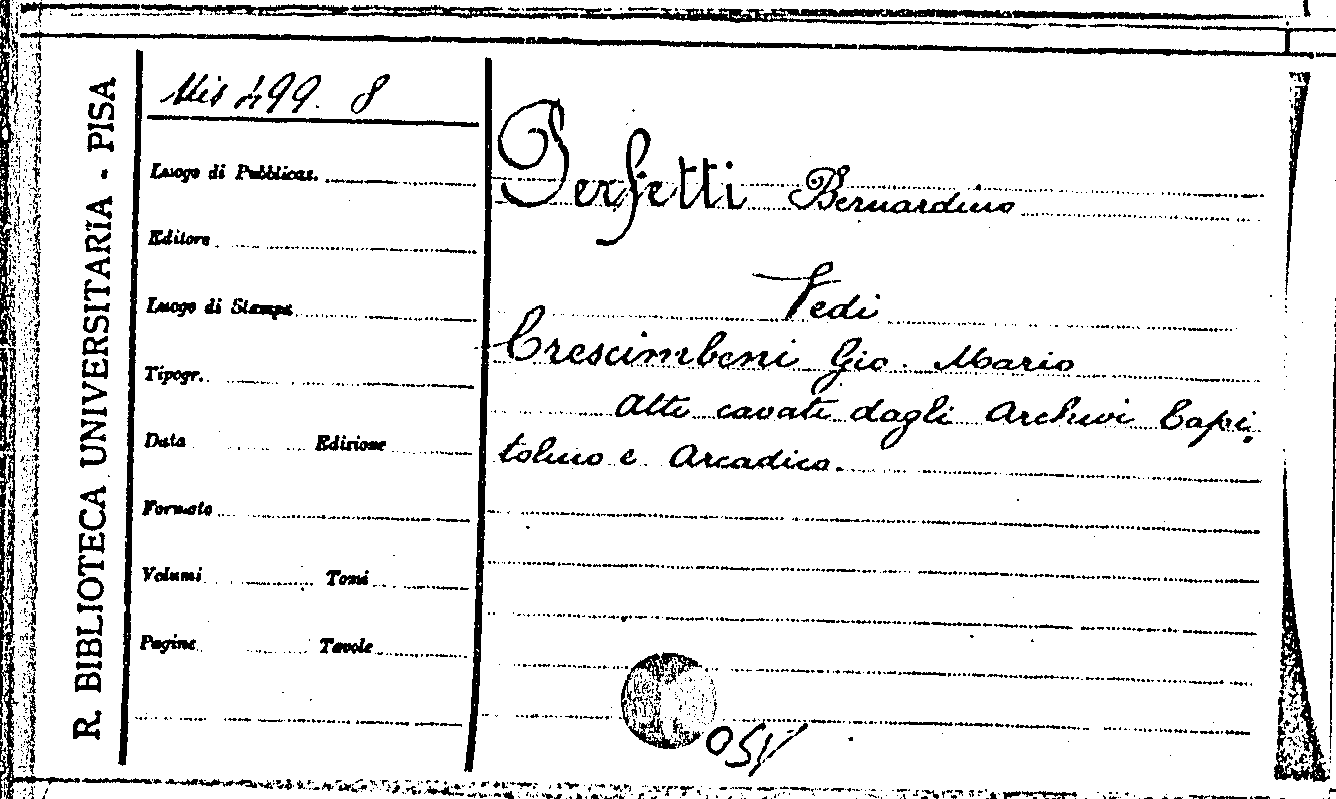 R. BIBLIOTECA UNIVERSITARIA - PISA
Mis 499. 8
Luogo di Pubblicaz.
Editore
Luogo di Stampa
Tipogr.
Data Edizione
Formato
Volumi Tomi
Pagine Tavole
Perfetti Bernardino
Vedi
Crescimbeni Gio. Mario
Atti cavati dagli Archivi Capi
tolino e Arcadico.